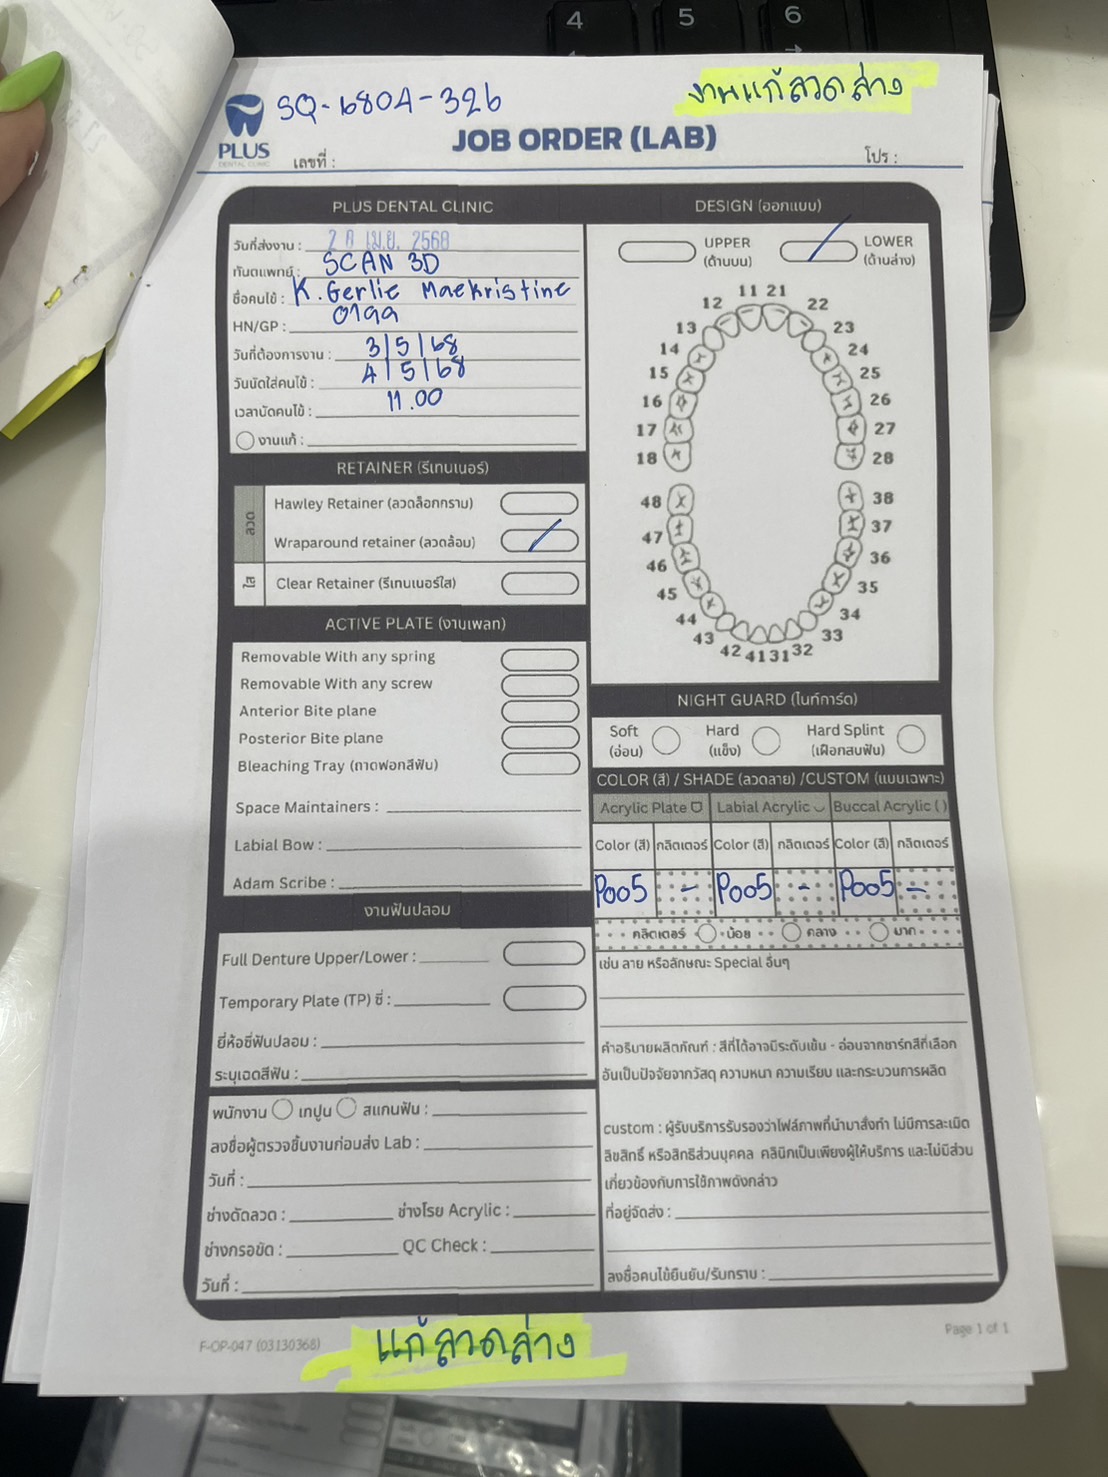 4 5 6
SQ-680A-326
งานแก้ลวดล่าง
PLUS
DENTAL CLINIC
JOB ORDER (LAB)
เลขที่ :
โปร :
PLUS DENTAL CLINIC
วันที่ส่งงาน : เม.ย. 2568
ทันตแพทย์ : SCAN 3D
ชื่อคนไข้ : K. Gerlie Maekristine
HN/GP : 0199
วันที่ต้องการงาน : 3/5/68
วันนัดใส่คนไข้ : 4/5/68
เวลานัดคนไข้ : 11.00
งานแก้ :
RETAINER (รีเทนเนอร์)
ลวด
Hawley Retainer (ลวดล็อกกราม)
Wraparound retainer (ลวดล้อม)
ใส
Clear Retainer (รีเทนเนอร์ใส)
ACTIVE PLATE (งานเพลท)
Removable With any spring
Removable With any screw
Anterior Bite plane
Posterior Bite plane
Bleaching Tray (ถาดฟอกสีฟัน)
Space Maintainers :
Labial Bow :
Adam Scribe :
งานฟันปลอม
Full Denture Upper/Lower :
Temporary Plate (TP) ซี่ :
ยี่ห้อซี่ฟันปลอม :
ระบุเฉดสีฟัน :
พนักงาน เทปูน สแกนฟัน :
ลงชื่อผู้ตรวจชิ้นงานก่อนส่ง Lab :
วันที่ :
ช่างดัดลวด : ช่างโรย Acrylic :
ช่างกรอขัด : QC Check :
วันที่ :
DESIGN (ออกแบบ)
UPPER
(ด้านบน)
LOWER
(ด้านล่าง)
11 21
12 22
13 23
14 24
15 25
16 26
17 27
18 28
48 38
47 37
46 36
45 35
44 34
43 33
42 41 31 32
NIGHT GUARD (ไนท์การ์ด)
Soft
(อ่อน)
Hard
(แข็ง)
Hard Splint
(เฝือกสบฟัน)
COLOR (สี) / SHADE (ลวดลาย) /CUSTOM (แบบเฉพาะ)
Acrylic Plate Labial Acrylic Buccal Acrylic ( )
Color (สี) กลิตเตอร์ Color (สี) กลิตเตอร์ Color (สี) กลิตเตอร์
P005 - P005 - P005 -
กลิตเตอร์ น้อย กลาง มาก
เช่น ลาย หรือลักษณะ Special อื่นๆ
คำอธิบายผลิตภัณฑ์ : สีที่ได้อาจมีระดับเข้ม - อ่อนจากชาร์ทสีที่เลือก
อันเป็นปัจจัยจากวัสดุ ความหนา ความเรียบ และกระบวนการผลิต
custom : ผู้รับบริการรับรองว่าไฟล์ภาพที่นำมาสั่งทำ ไม่มีการละเมิด
ลิขสิทธิ์ หรือสิทธิส่วนบุคคล คลินิกเป็นเพียงผู้ให้บริการ และไม่มีส่วน
เกี่ยวข้องกับการใช้ภาพดังกล่าว
ที่อยู่จัดส่ง :
ลงชื่อคนไข้ยืนยัน/รับทราบ :
F-OP-047 (03130368)
แก้ลวดล่าง
Page 1 of 1